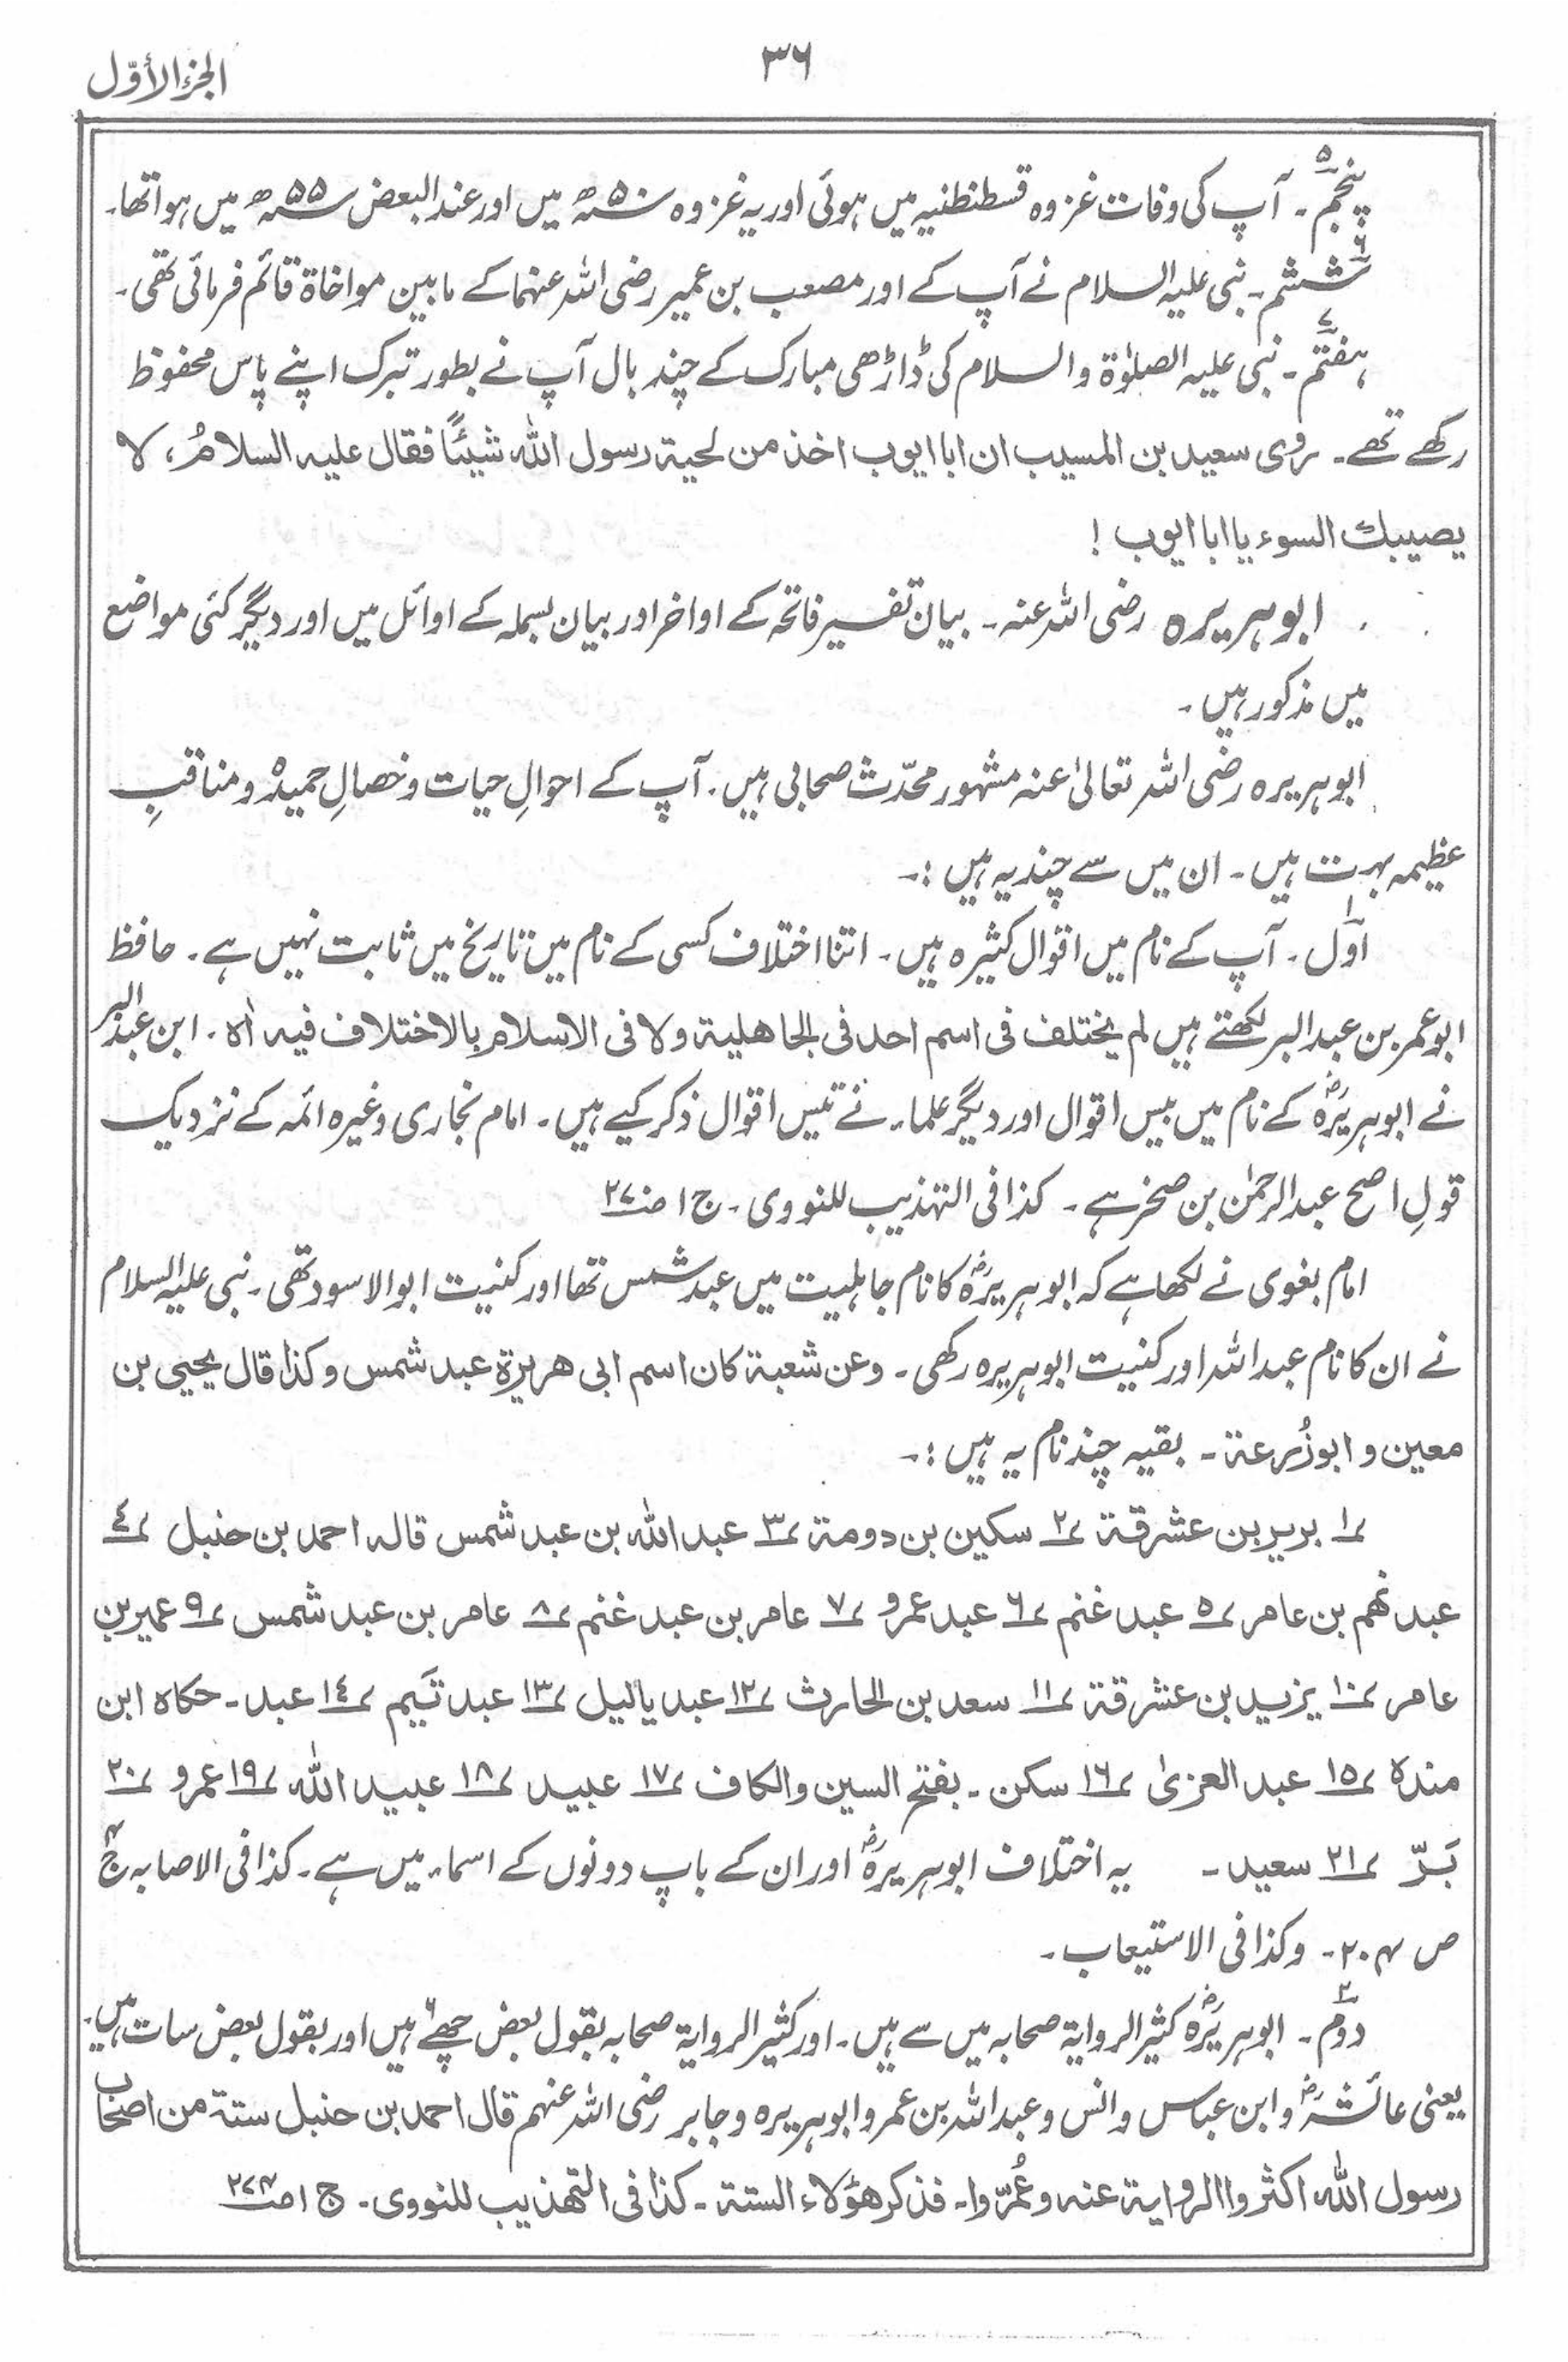 ٣٦
الجزء الأوّل
پنجم ۵۔ آپ کی وفات غزوہ قسطنطنیہ میں ہوئی اور یہ غزوہ ۵۰ھ میں اور عند البعض ۵۵ھ میں ہوا تھا۔
ششم ۶۔ نبی علیہ السلام نے آپ کے اور مصعب بن عمیر رضی اللہ عنہما کے مابین مواخاۃ قائم فرمائی تھی۔
ہفتم ۷۔ نبی علیہ الصلوٰۃ والسلام کی ڈاڑھی مبارک کے چند بال آپ نے بطور تبرک اپنے پاس محفوظ
رکھے تھے۔ روی سعید بن المسیب ان ابا ایوب اخذ من لحیۃ رسول اللہ شیئًا فقال علیہ السلامُ، لا
یصیبك السوء یا ابا ایوب !
ابوہریرہ رضی اللہ عنہ۔ بیان تفسیر فاتحہ کے اواخر اور بیان بسملہ کے اوائل میں اور دیگر کئی مواضع
میں مذکور ہیں۔
ابوہریرہ رضی اللہ تعالیٰ عنہ مشہور محدّث صحابی ہیں۔ آپ کے احوالِ حیات و خصالِ حمیدہ و مناقبِ
عظیمہ بہت ہیں۔ ان میں سے چند یہ ہیں :۔
اوّل ۱۔ آپ کے نام میں اقوال کثیرہ ہیں۔ اتنا اختلاف کسی کے نام میں تاریخ میں ثابت نہیں ہے۔ حافظ
ابو عمر بن عبد البر لکھتے ہیں لم یختلف فی اسم احد فی الجاهلیۃ ولا فی الاسلام بالاختلاف فیہ اٰہ۔ ابن عبد البر
نے ابوہریرہؓ کے نام میں بیس اقوال اور دیگر علماء نے تیس اقوال ذکر کیے ہیں۔ امام بخاری وغیرہ ائمہ کے نزدیک
قولِ اصح عبد الرحمٰن بن صخر ہے۔ کذا فی التہذیب للنووی۔ ج ۱ ص ۲۷۰
امام بغوی نے لکھا ہے کہ ابوہریرہؓ کا نام جاہلیت میں عبد شمس تھا اور کنیت ابو الاسود تھی۔ نبی علیہ السلام
نے ان کا نام عبد اللہ اور کنیت ابوہریرہ رکھی۔ وعن شعبۃ کان اسم ابی هریرۃ عبد شمس وکذا قال یحیی بن
معین و ابوزُرعۃ۔ بقیہ چند نام یہ ہیں :۔
؍١ بریر بن عشرقۃ ؍٢ سکین بن دومۃ ؍٣ عبد اللہ بن عبد شمس قالہ احمد بن حنبل ؍٤
عبد نُهم بن عامر ؍٥ عبد غنم ؍٦ عبد عمرو ؍٧ عامر بن عبد غنم ؍٨ عامر بن عبد شمس ؍٩ عمیر بن
عامر ؍١٠ یزید بن عشرقۃ ؍١١ سعد بن الحارث ؍١٢ عبد یالیل ؍١٣ عبد تَیم ؍١٤ عبد۔ حکاہ ابن
مندۃ ؍١٥ عبد العزیٰ ؍١٦ سکن۔ بفتح السین والکاف ؍١٧ عبید ؍١٨ عبید اللہ ؍١٩ عمرو ؍٢٠
بَرّ ؍٢١ سعید۔ یہ اختلاف ابوہریرہؓ اور ان کے باپ دونوں کے اسماء میں ہے۔ کذا فی الاصابہ ج ۴
ص ۲۰۴۔ وکذا فی الاستیعاب۔
دوّم ۲۔ ابوہریرہؓ کثیر الروایۃ صحابہ میں سے ہیں۔ اور کثیر الروایۃ صحابہ بقول بعض چھے ۶ ہیں اور بقول بعض سات ہیں۔
یعنی عائشہؓ و ابن عباس و انس و عبد اللہ بن عمر و ابوہریرہ و جابر رضی اللہ عنہم قال احمد بن حنبل ستۃ من اصحاب
رسول اللہ اکثروا الروایۃ عنہ وعُمّروا۔ فذکر هؤلاء الستۃ۔ کذا فی التهذیب للنووی۔ ج ۱ ص ۲۷۴